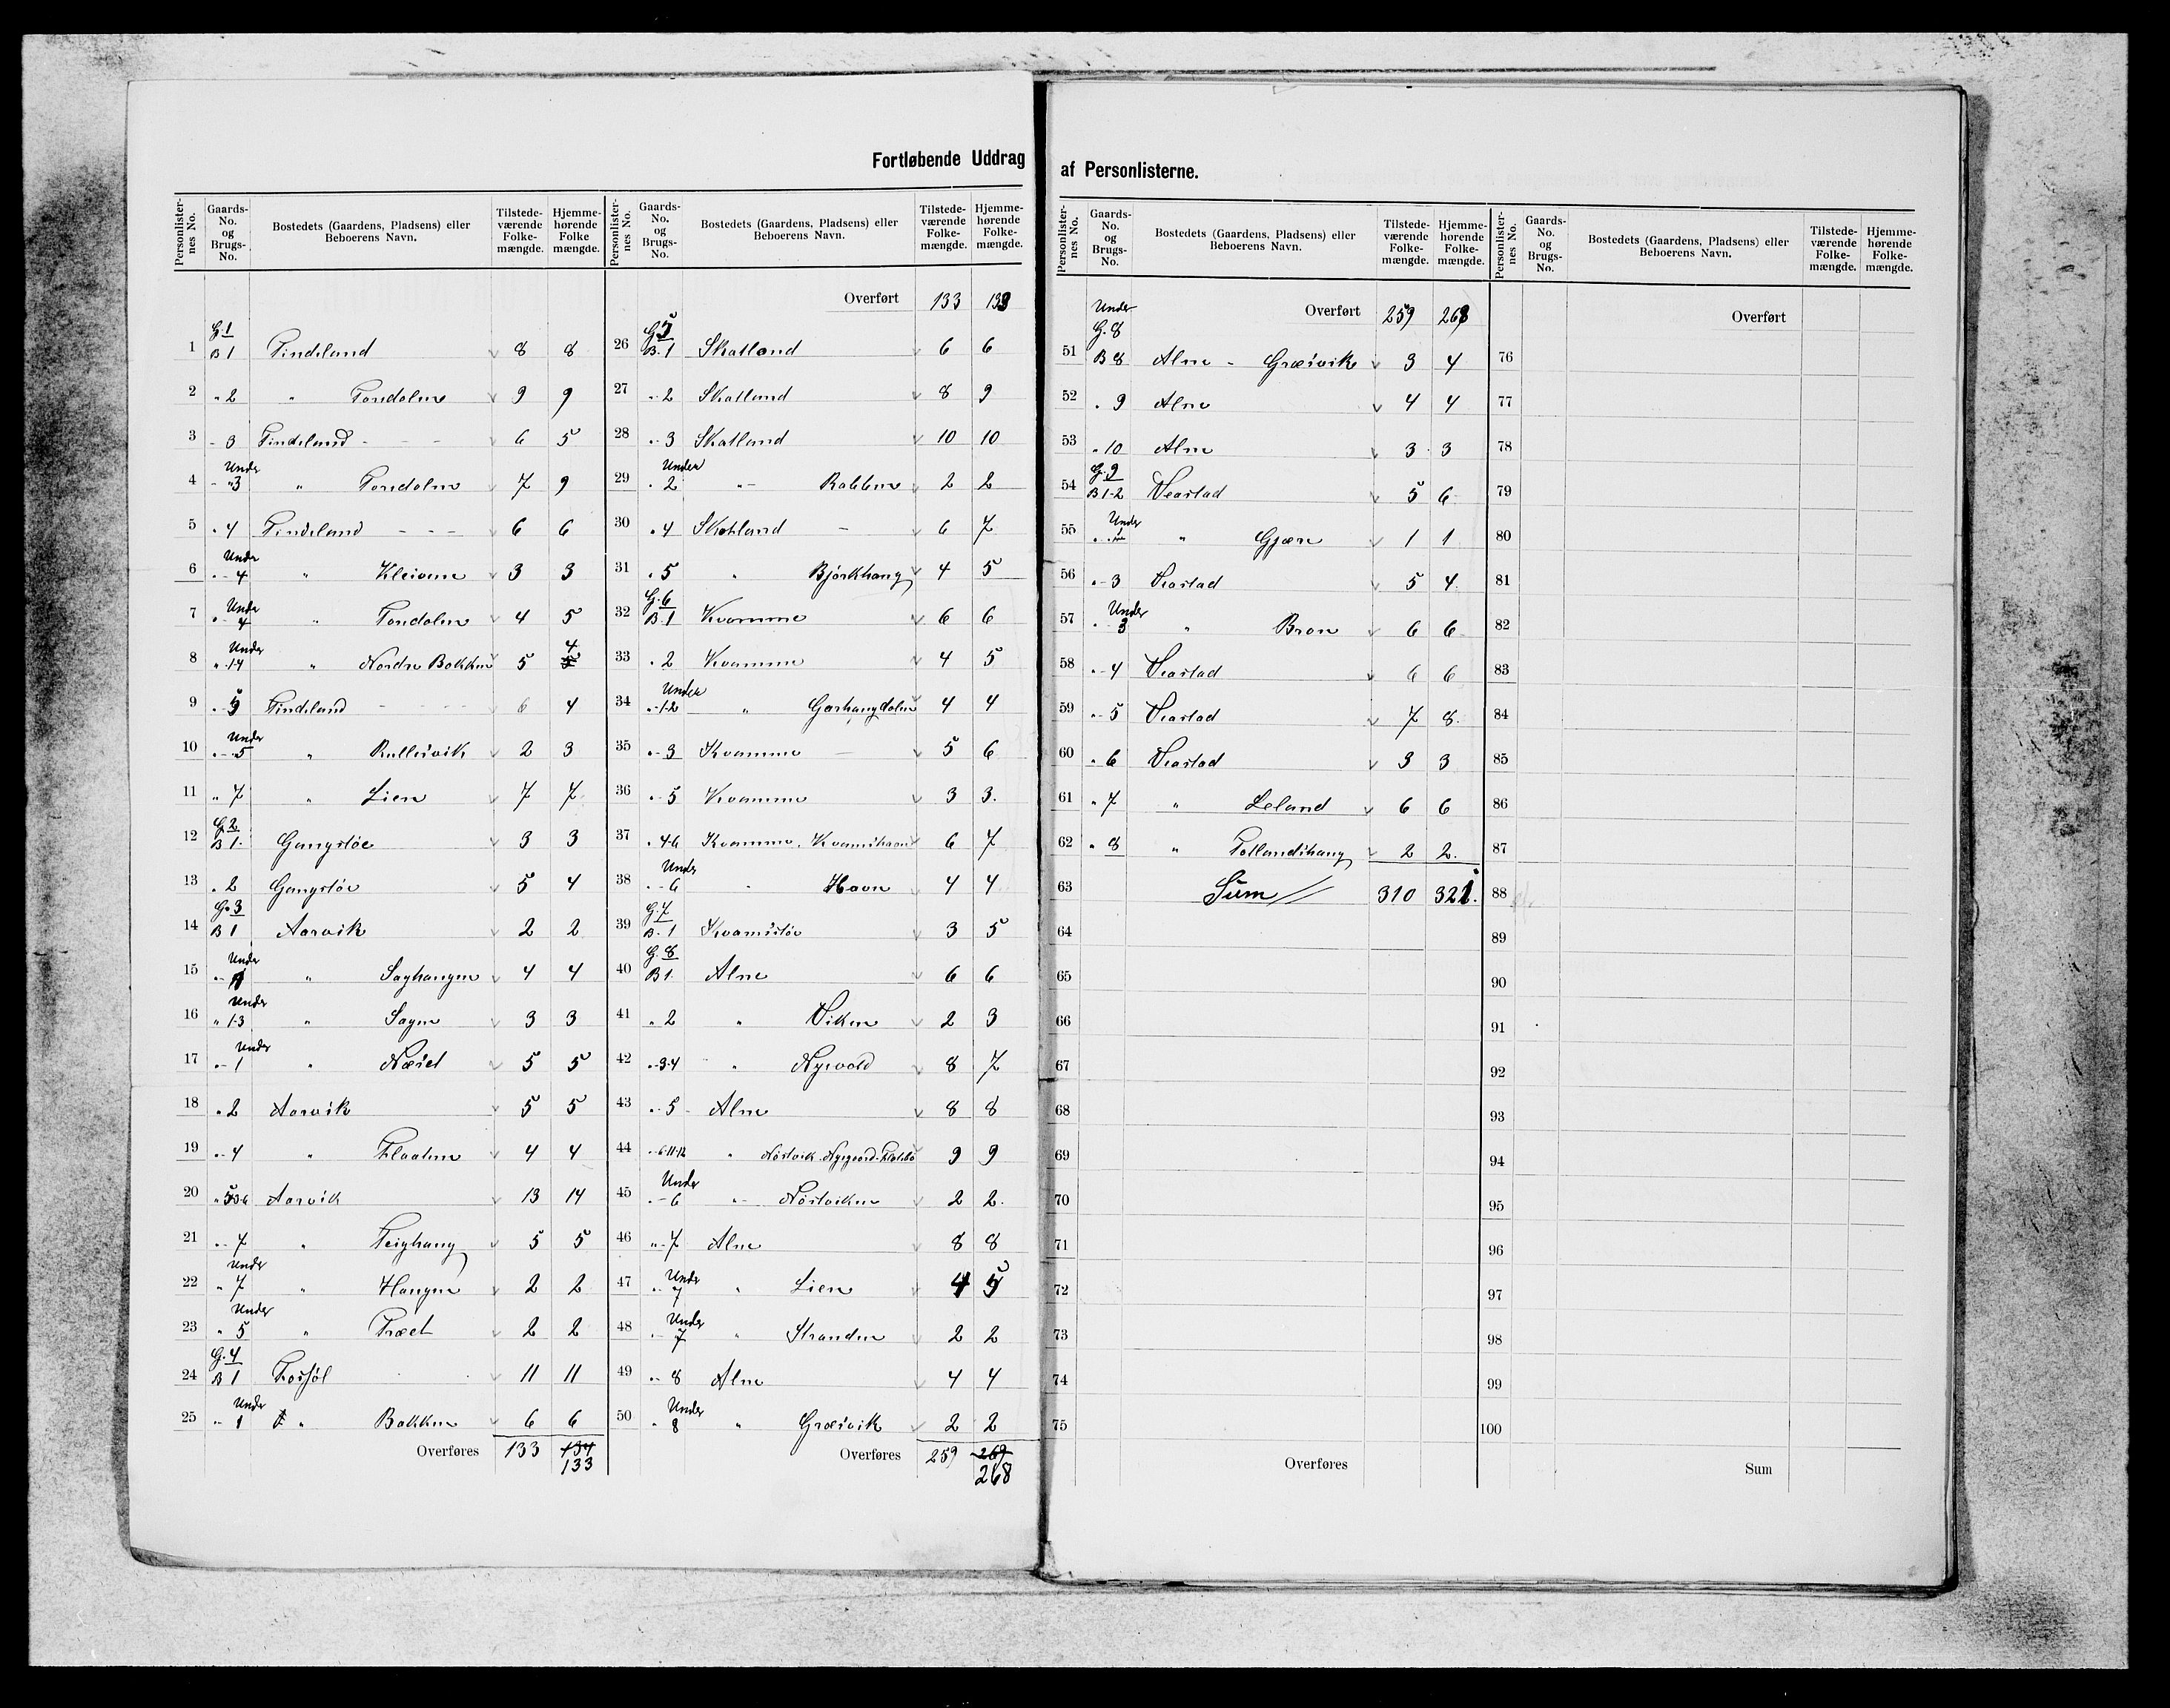 Fortløbende Uddrag af Personlisterne.
Personlister-nes No. | Gaards-No. og Brugs-No. | Bostedets (Gaardens, Pladsens) eller Beboerens Navn. | Tilstede-værende Folke-mængde. | Hjemme-hørende Folke mængde.
G. 1
1 B 1 Tindeland 8 8
2 " 2 " Tondalen 9 9
3 " 3 Tindeland - - - 6 5
4 Under " 3 " Tondalen 7 9
5 " 4 Tindeland - - - 6 6
6 Under " 4 " Kleivene 3 3
7 Under " 4 " Tondalen 4 5
8 Under " 1-4 " Nordre Bakken 5 4
9 " 5 Tindeland - - - 6 4
10 Under " 5 " Rullesvik 2 3
11 " 7 " Lien 7 7
G. 2
12 B 1. Gangstøe 3 3
13 " 2 Gangstøe 5 4
G. 3
14 B 1 Aarvik 2 2
15 Under " 1 " Saghaugen 4 4
16 Under " 1-3 " Sagen 3 3
17 Under " 1 " Næset 5 5
18 " 2 Aarvik 5 5
19 " 4 " Flaaten 4 4
20 " Aarvik 13 14
21 " 7 " Teighaug 5 5
22 Under " 7 " Haugen 2 2
23 Under " 5 " Træet 2 2
G. 4
24 B 1 Fosjøl 11 11
25 Under " 1 " Bakken 6 6
Overføres 133 134
133
Personlister-nes No. | Gaards-No. og Brugs-No. | Bostedets (Gaardens, Pladsens) eller Beboerens Navn. | Tilstede-værende Folke-mængde. | Hjemme-hørende Folke-mængde.
Overført 133 133
G. 5
26 B. 1 Skatland 6 6
27 " 2 Skatland 8 9
28 " 3 Skatland 10 10
29 Under " 2 " Rabben 2 2
30 " 4 Skatland - 6 7
31 " 5 " Bjørkhaug 4 5
G. 6
32 B. 1 Kvamme 6 6
33 " 2 Kvamme 4 5
34 Under " 1-2 " Garhaugdalen 4 4
35 " 3 Kvamme - 5 6
36 " 5 Kvamme 3 3.
37 " 4-6 Kvamme, Kvamshavn 6 7
38 Under " 6 " Havn 4 4
G. 7
39 B. 1 Kvamstøe 3 5
G. 8
40 B 1. Alne 6 6
41 " 2 " Viken 2 3
42 " 3-4 " Nysvold 8 7
43 " 5 - Alne 8 8
44 " 6-11-12 " Nøstvik-Nygaard- 9 9
45 Under " 6 " Nøstviken 2 2.
46 " 7 Alne 8 8
47 Under " 7 " Lien 4 5
48 Under " 7 " Stranden 2 2
49 " 8 Alne 4 4
50 Under " 8 " Græsvik 2 2
Overføres 259 269
268
Personlister-nes No. | Gaards-No. og Brugs-No. | Bostedets (Gaardens, Pladsens) eller Beboerens Navn. | Tilstede-værende Folke-mængde. | Hjemme-hørende Folke-mængde.
Overført 259 268
Under G. 8
51 B 8 Alne - Græsvik 3 4
52 " 9 Alne 4 4
53 " 10 Alne 3 3
G. 9
54 B 1-2 Veastad 5 6
55 Under " " Gjæra 1 1
56 " 3 Veastad 5 4
57 Under " 3 " Bran 6 6
58 " 4 Veastad 6 6
59 " 5 Veastad 7 8.
60 " 6 Veastad 3 3
61 " 7 " Leland 6 6
62 " 8 " Tollandshaug 2 2.
63 Sum 310 321.
64
65
66
67
68
69
70
71
72
73
74
75
Overføres
Personlister-nes No. | Gaards-No. og Brugs-No. | Bostedets (Gaardens, Pladsens) eller Beboerens Navn. | Tilstede-værende Folke-mængde. | Hjemme-hørende Folke-mængde.
Overført
76
77
78
79
80
81
82
83
84
85
86
87
88
89
90
91
92
93
94
95
96
97
98
99
100
Sum